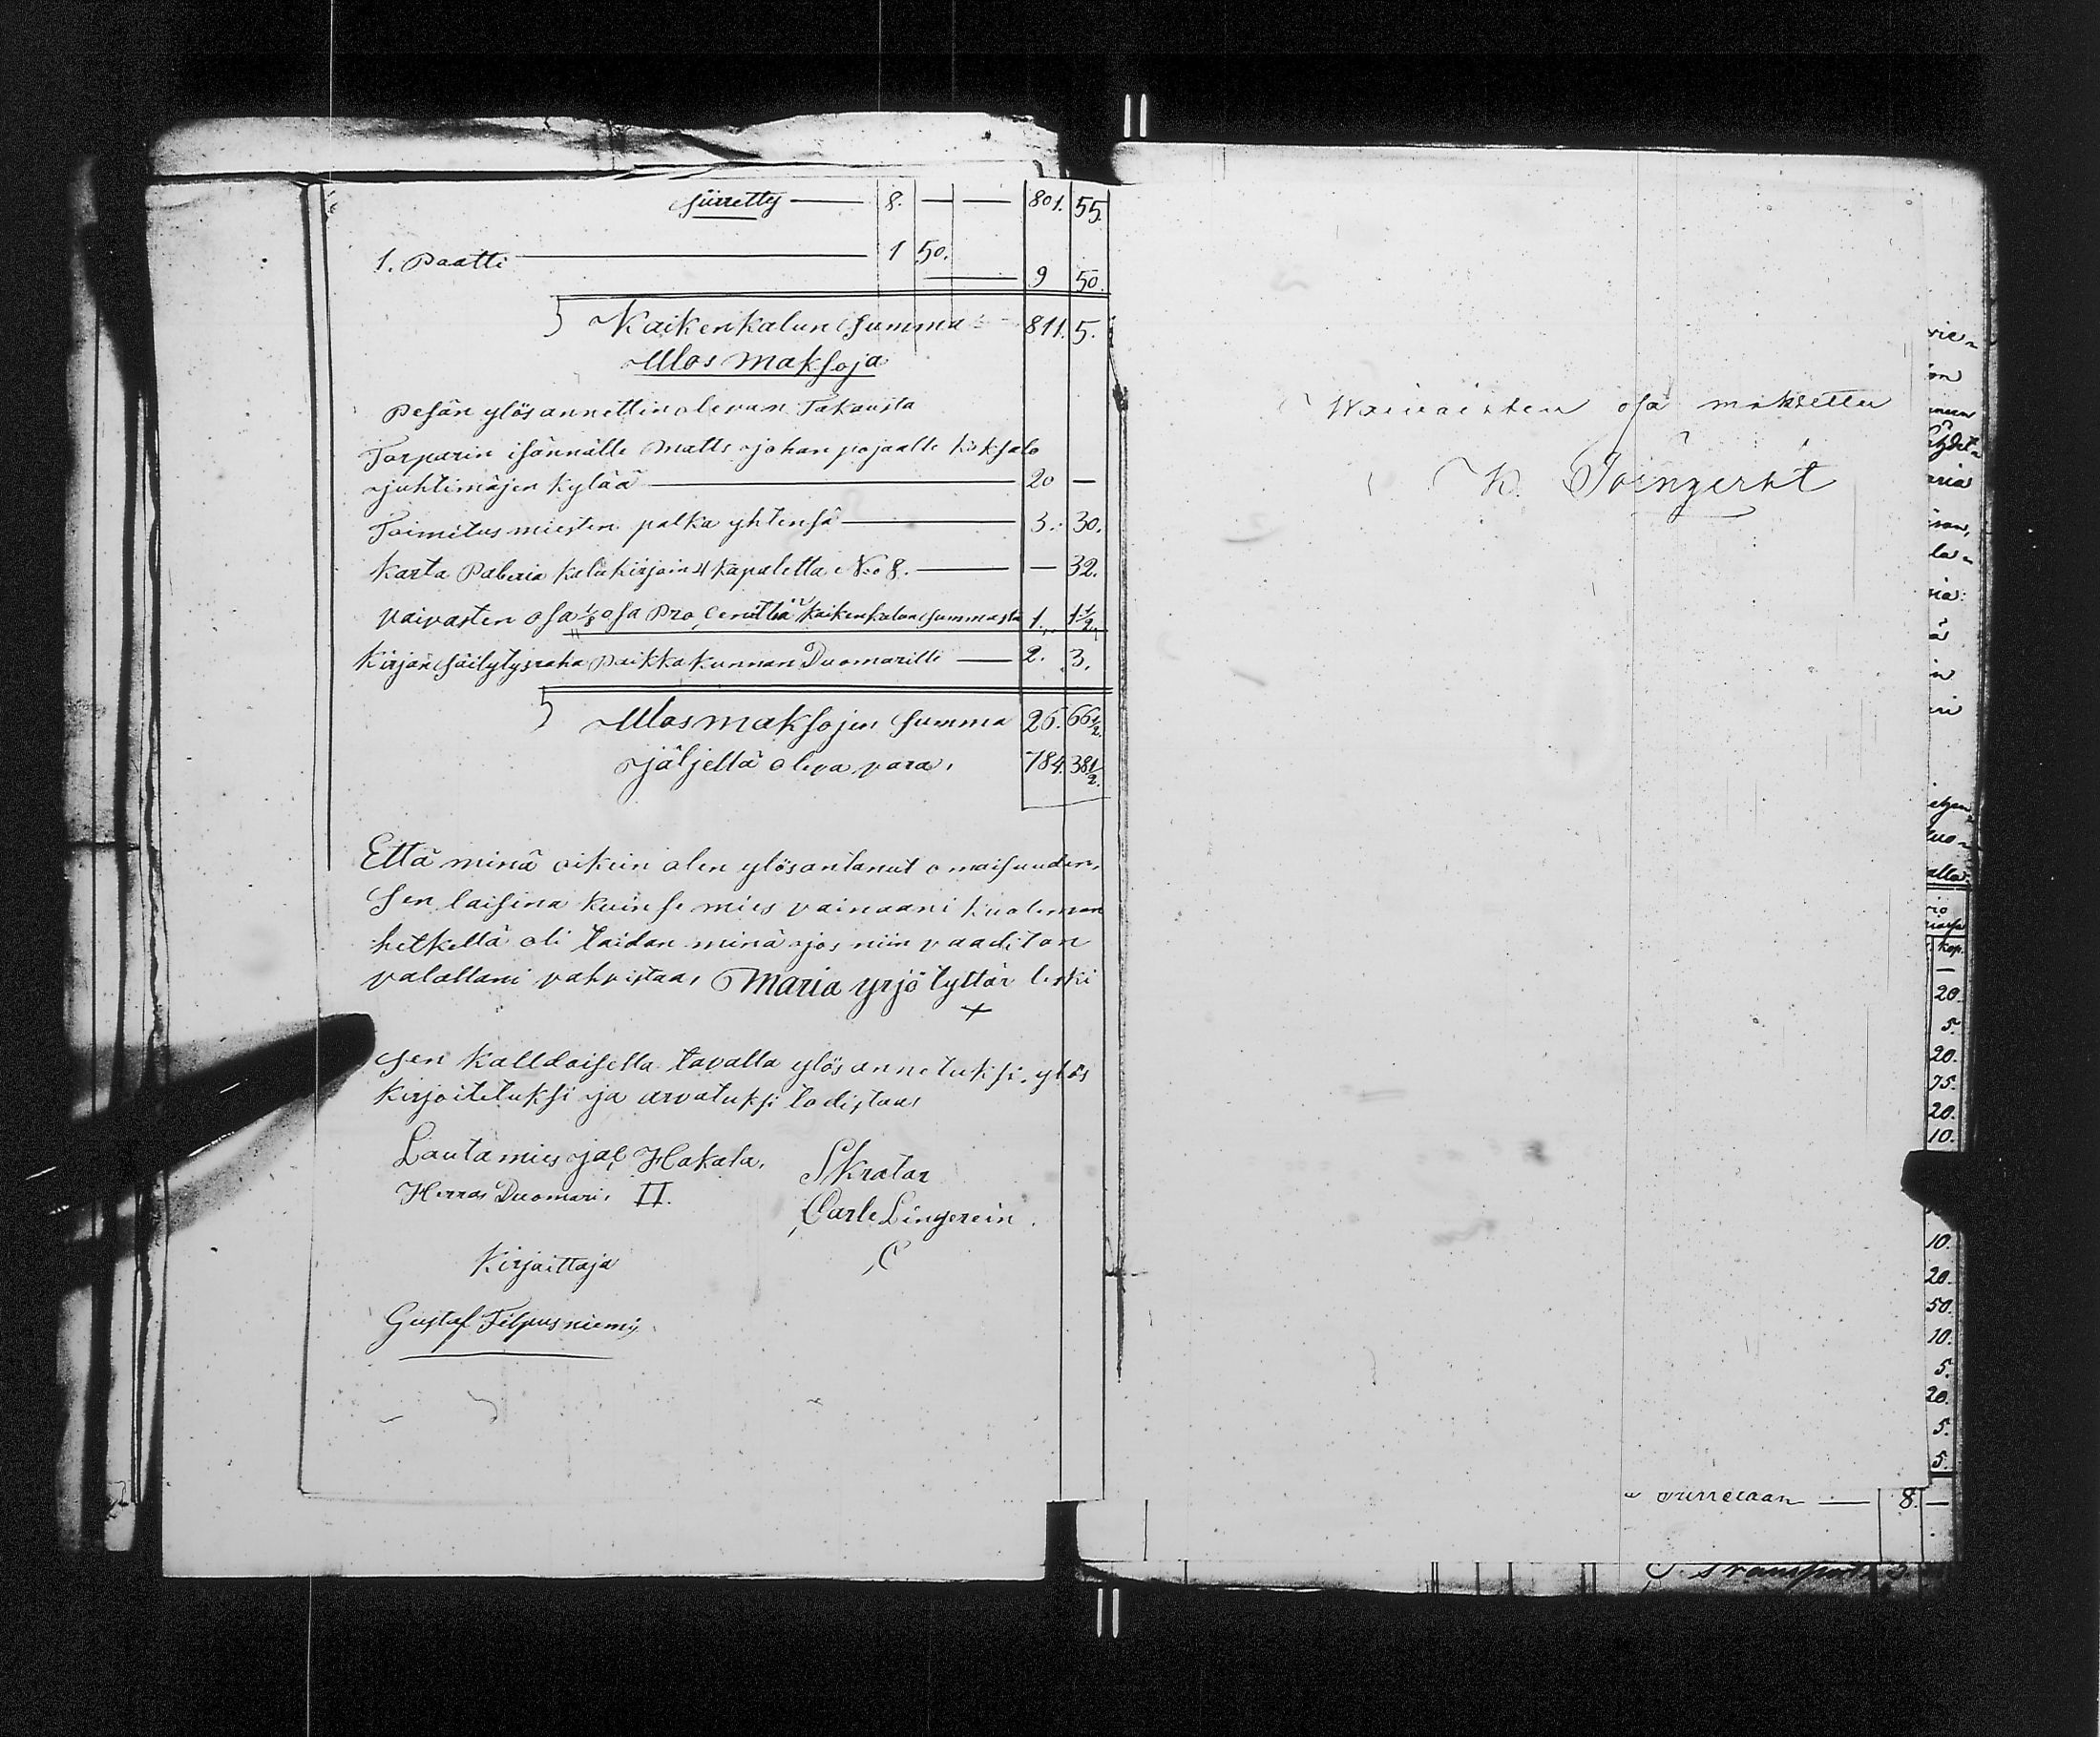 Siirretty — 8. — — 801. 55.
1. Paatti — 1 50.
— 9 50.
Kaikenkalun Summa 811. 5.
Ulos maksoja
Pesän ylösannettin olevan Takausta
Torparin isännälle Matts Johan pojaalle
Juhtimäjen kylää — 20 —
Toimitus miesten palka yhtensä — 3. 30.
Karta Paberia kalukirjain 4 kapaletta No 8. — — 32.
Vaivasten osa 1/8 osa Pro Centtiä Kaikenkalun Summasta 1. 1 1/2
Kirjan säilytysraha Paikkakunnan Duomarille — 2. 3.
Ulosmaksojen Summa 26. 66 1/2.
Jäljellä oleva vara, 784. 38 1/2.
Että minä oikein olen ylösantanut omaisuuden,
Sen laisina kuin se mies vainaani kuoleman
hetkellä oli taidan minä jos niin vaaditan
valallani vahvistaa, Maria yrjö tyttär leski
+
Sen kalldaisella tavalla ylös annetuksi, ylös
kirjoitetuksi ja arvatuksi todistaa,
Lautamies Hakala,
Herras Duomari, II.
Kirjoittaja
Gustaf Filpusniemi
Waivaisten osa maksettu
kop.
—
20.
5.
20.
75.
20.
10.
10.
20.
50.
10.
5.
20.
5.
5.
8. —